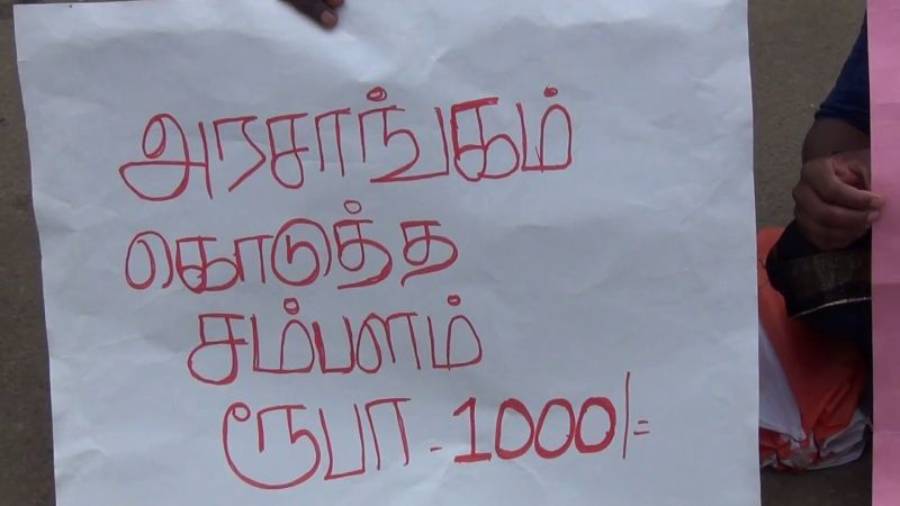 அரசாங்கம்
கொடுத்த
சம்பளம்
ரூபா - 1000/=